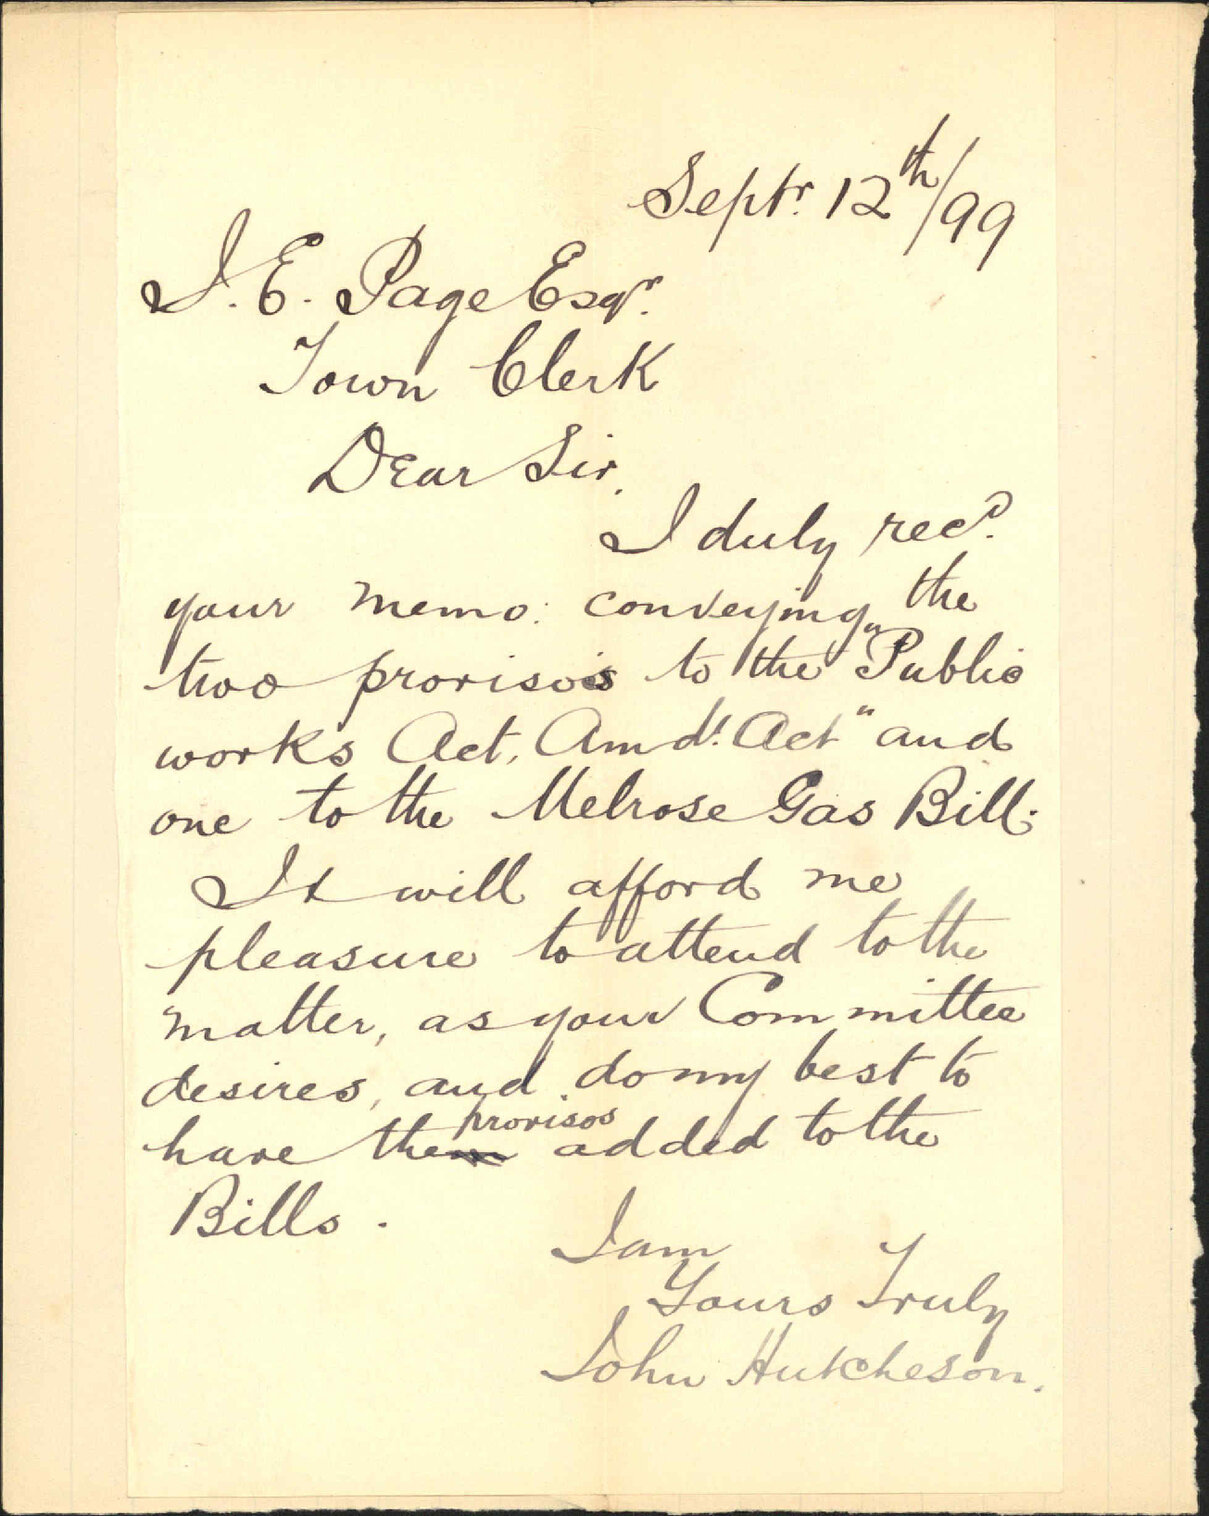 Septr. 12th/99
J. E. Page Esqr.
Town Clerk
Dear Sir,
I duly recd.
your memo: conveying the
two provisos to the "Public
works Act, Amdt. Act" and
one to the Melrose Gas Bill.
It will afford me
pleasure to attend to the
matter, as your Committee
desires, and do my best to
have the provisos added to the
Bills.
I am
Yours Truly
John Hutcheson.